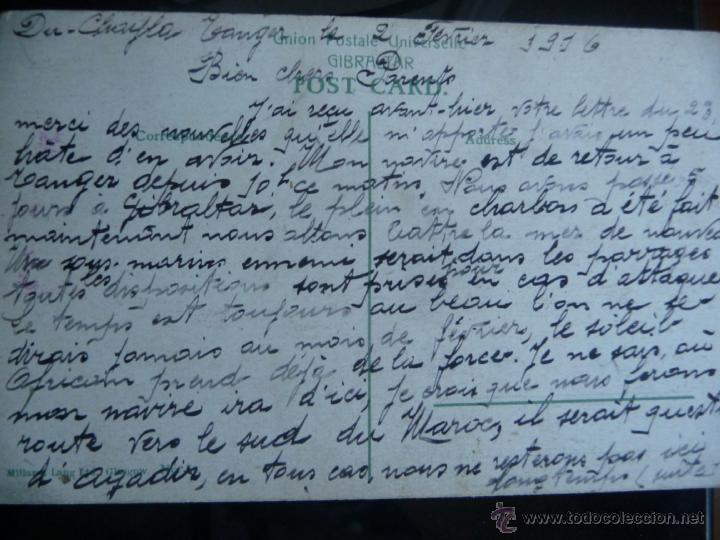 Du-Chayla Tanger le 2 Février 1916
Union Postale Universelle
GIBRALTAR
Bien chers Parents
POST CARD.
J'ai reçu avant-hier votre lettre du 23,
merci des nouvelles qu'elle m'apporte j'avais un peu
Correspondence
Address
hate d'en avoir. Mon navire est de retour à
Tanger depuis 10h ce matin. Nous avons passé
jours a Gibraltar, le plein en charbon a été fait
maintenant nous allons battre la mer de nouveau
Un sous-marin ennemi serait dans les parages
toutes les dispositions sont prises pour en cas d'attaque
le temps est toujours au beau l'on ne se
dirais jamais au mois de février, le soleil
Africain prend déjà de la force. Je ne sais, où
mon navire ira d'ici, je crois que nous ferons
route vers le sud du Maroc, il serait quest
d'Agadir, en tous cas, nous ne resterons pas ici
Millar & Lang Ltd. Glasgow
longtemps (suite
www.todocoleccion.net